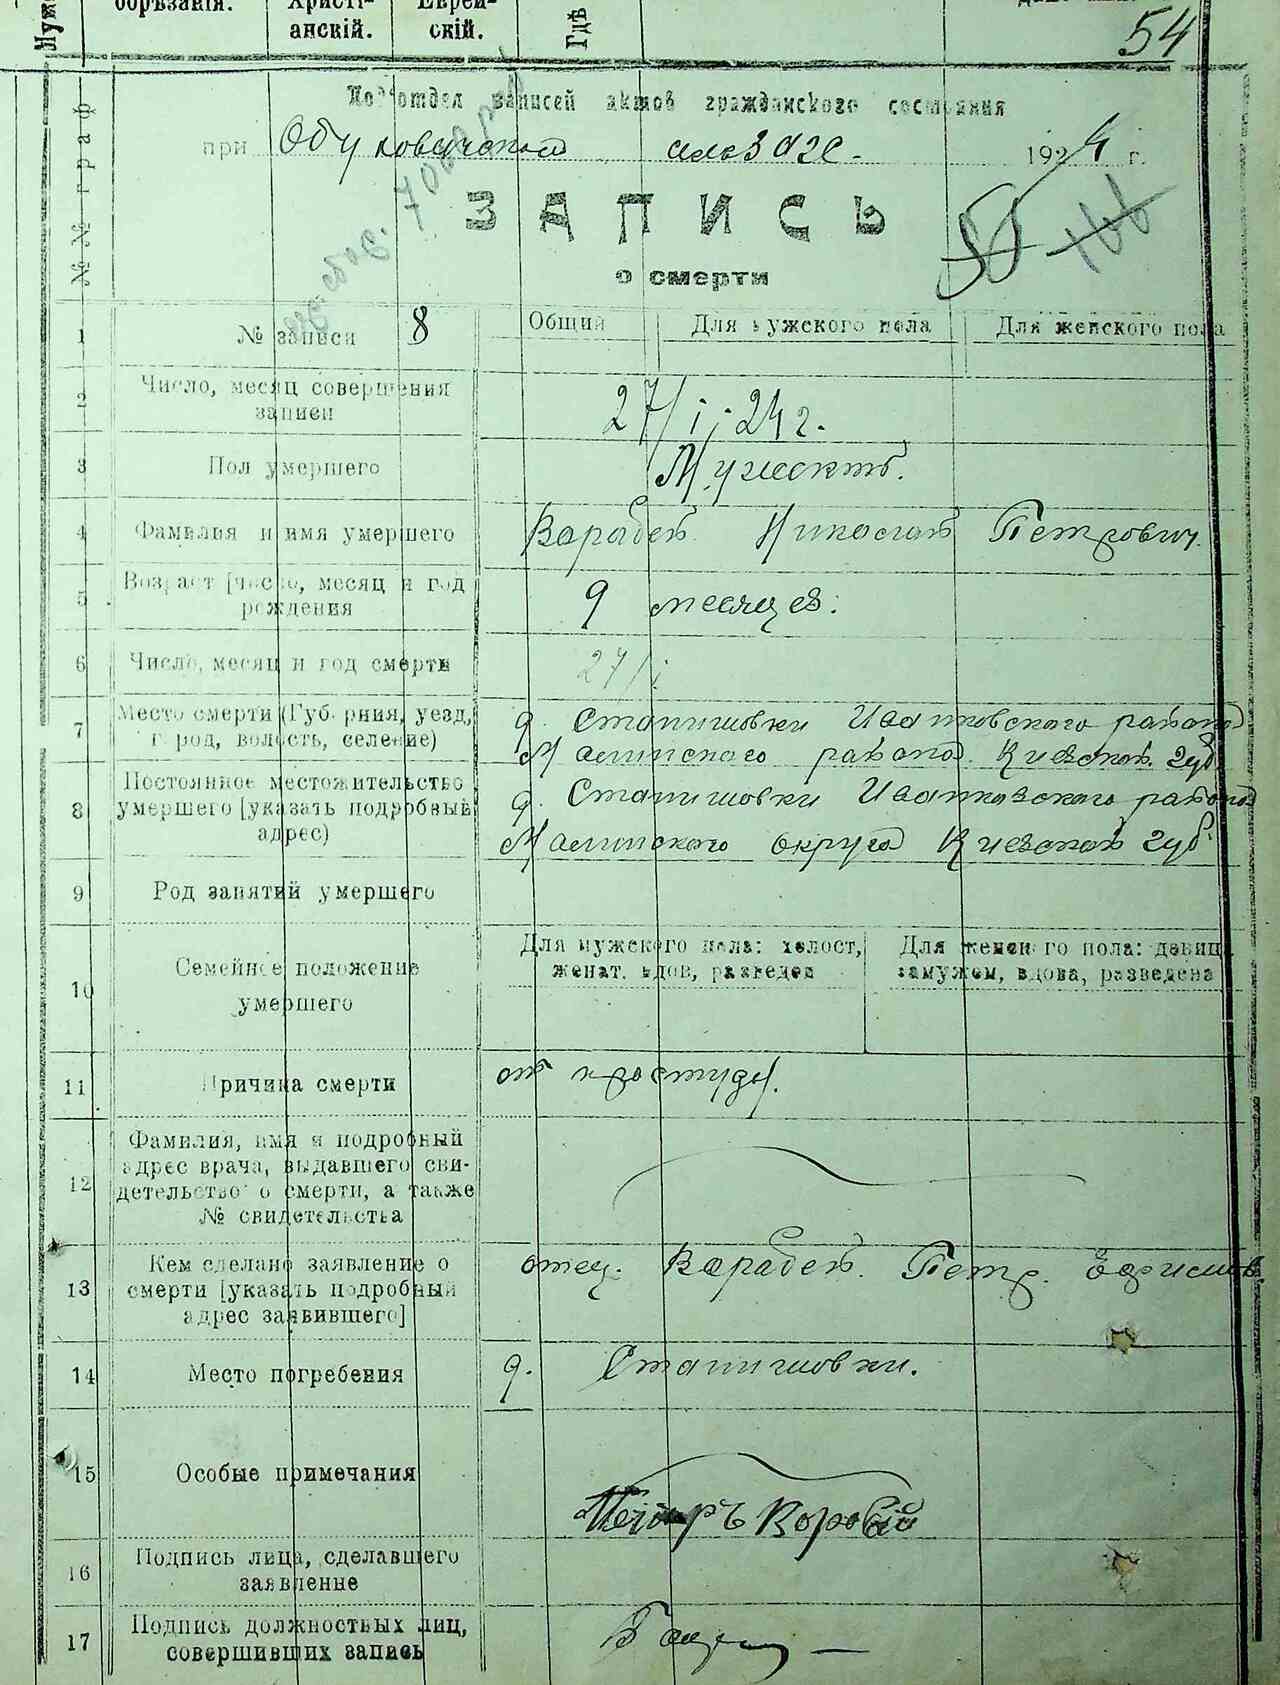 обрѣзанія.
Христі-
анскій.
Еврей-
скій.
Гдѣ
54
№ № граф
Подотдел записей актов гражданского состояния
при Обуховичской 1924 г.
ЗАПИСЬ
о смерти
55 166
1 № записи 8 Общий Для мужского пола Для женского пола
2 Число, месяц совершения
записи
27/I 24 г.
3 Пол умершего Мужескъ.
4 Фамилия и имя умершего Варабей Николай Петрович.
5 Возраст [число, месяц и год
рождения
9 месяцев.
6 Число, месяц и год смерти 27/I
7 Место смерти (Губерния, уезд,
город, волость, селение)
д. Станишовки Иванковского района
Малинского района Киевской губ
8 Постоянное местожительство
умершего [указать подробный
адрес)
д. Станишовки Иванковского района
Малинского округа Киевской губ.
9 Род занятий умершего
10 Семейное положение
умершего
Для мужского пола: холост,
женат, вдов, разведен
Для женского пола: девица
замужем, вдова, разведена
11 Причина смерти от простуды.
12 Фамилия, имя и подробный
адрес врача, выдавшего сви-
детельство о смерти, а также
№ свидетельства
13 Кем сделано заявление о
смерти [указать подробный
адрес заявившего]
отец. Варабей Петр.
14 Место погребения д. Станишовки.
15 Особые примечания
Петръ Воробій
16 Подпись лица, сделавшего
заявление
17 Подпись должностных лиц,
совершивших запись